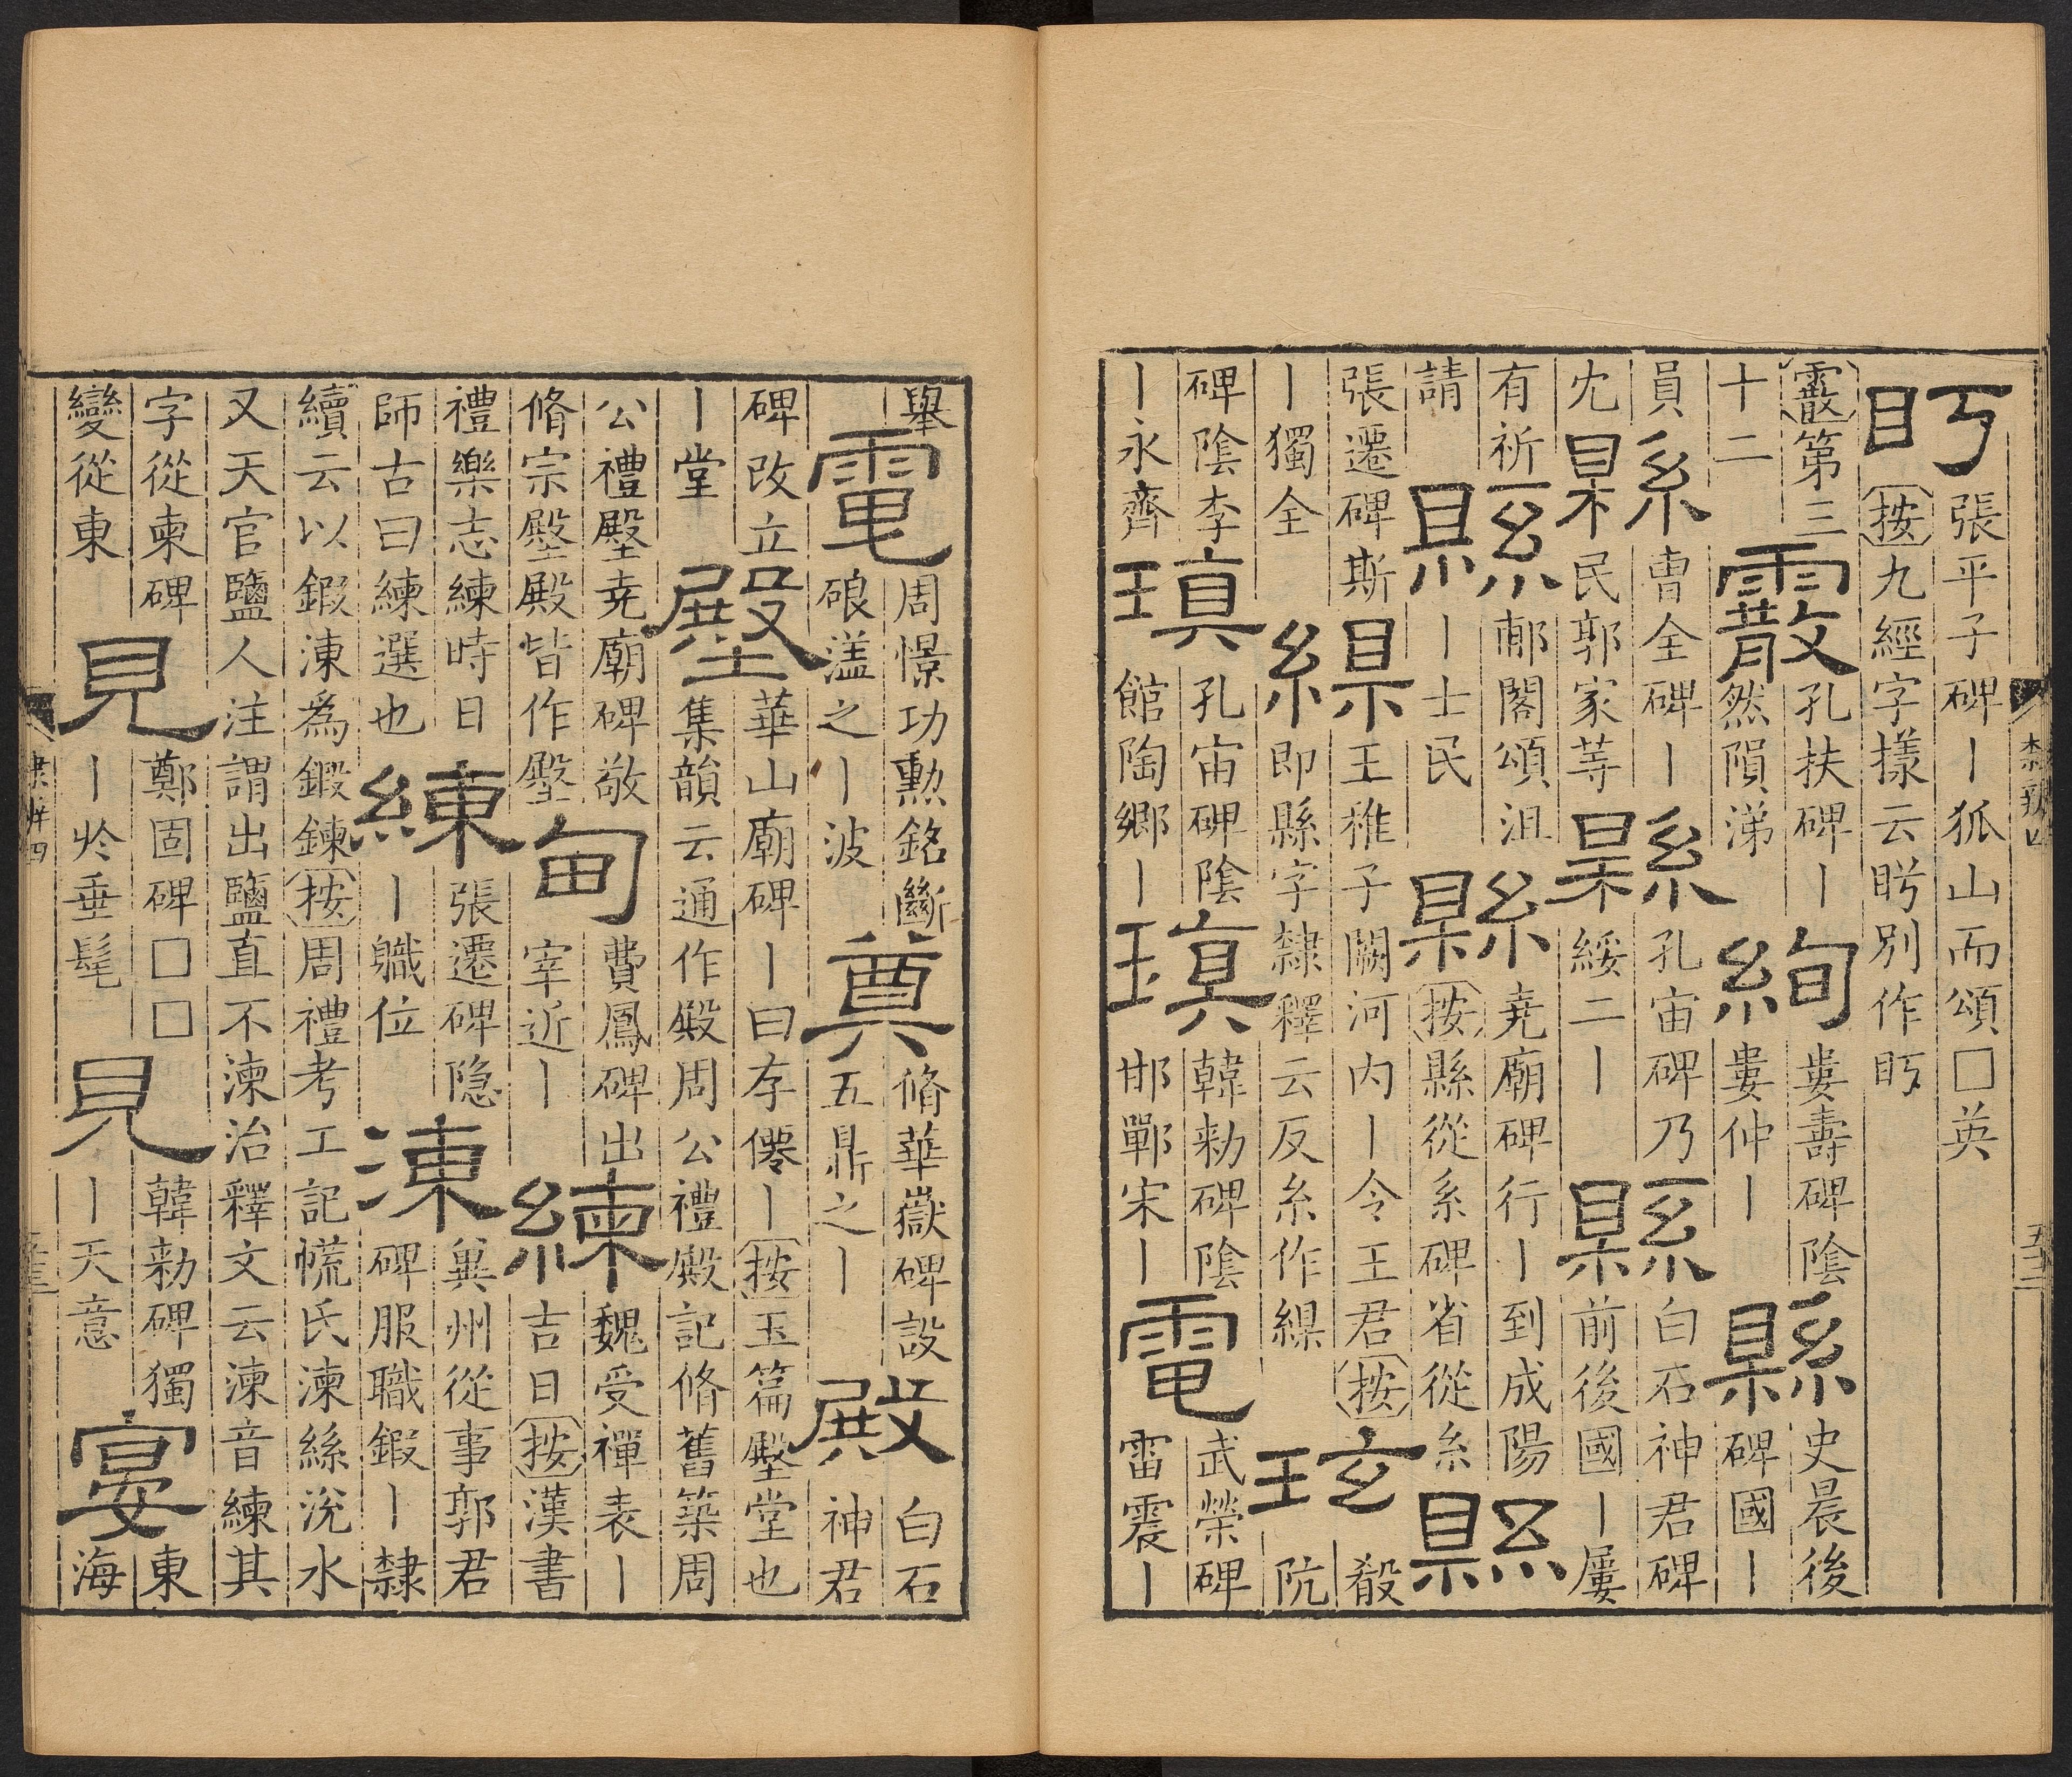 眄張平子碑〡狐山而頌□英按九經字樣云眄別作䀏
霰第三十二霰孔扶碑〡然隕涕絢婁壽碑陰婁仲〡縣史晨後碑國〡
員冘縣曹全碑〡民郭家等縣孔宙碑乃綏二〡縣白石神君碑前後國〡屢
有祈請縣郙閣頌沮〡士民縣堯廟碑行〡到成陽按縣從系碑省從糸縣
張遷碑斯〡獨全縣王稚子闕河内〡令王君按即縣字隸釋云反糸作縣玹殽阬
碑陰李〡永齊瑱孔宙碑陰館陶鄉〡瑱韓勑碑陰邯鄲宋〡電武榮碑雷震〡
隸辨四
五十二
舉電周憬功勲銘斷硠溘之〡波奠脩華嶽碑設五鼎之〡殿白石神君
碑改立〡堂壂華山廟碑〡曰存僊〡按玉篇壂堂也集韻云通作殿周公禮殿記脩舊築周
公禮壂堯廟碑敬脩宗壂殿皆作壂甸費鳳碑出宰近〡練魏受禪表〡吉日按漢書
禮樂志練時日師古曰練選也練張遷碑隐〡軄位湅兾州從事郭君碑服職鍜〡隸
續云以鍜湅爲鍛鍊按周禮考工記㡃氏湅絲涚水又天官鹽人注謂出鹽直不湅治釋文云湅音練其
字從柬碑變從東見鄭固碑□□〡於垂髦見韓勑碑獨〡天意宴東海
隸辨四